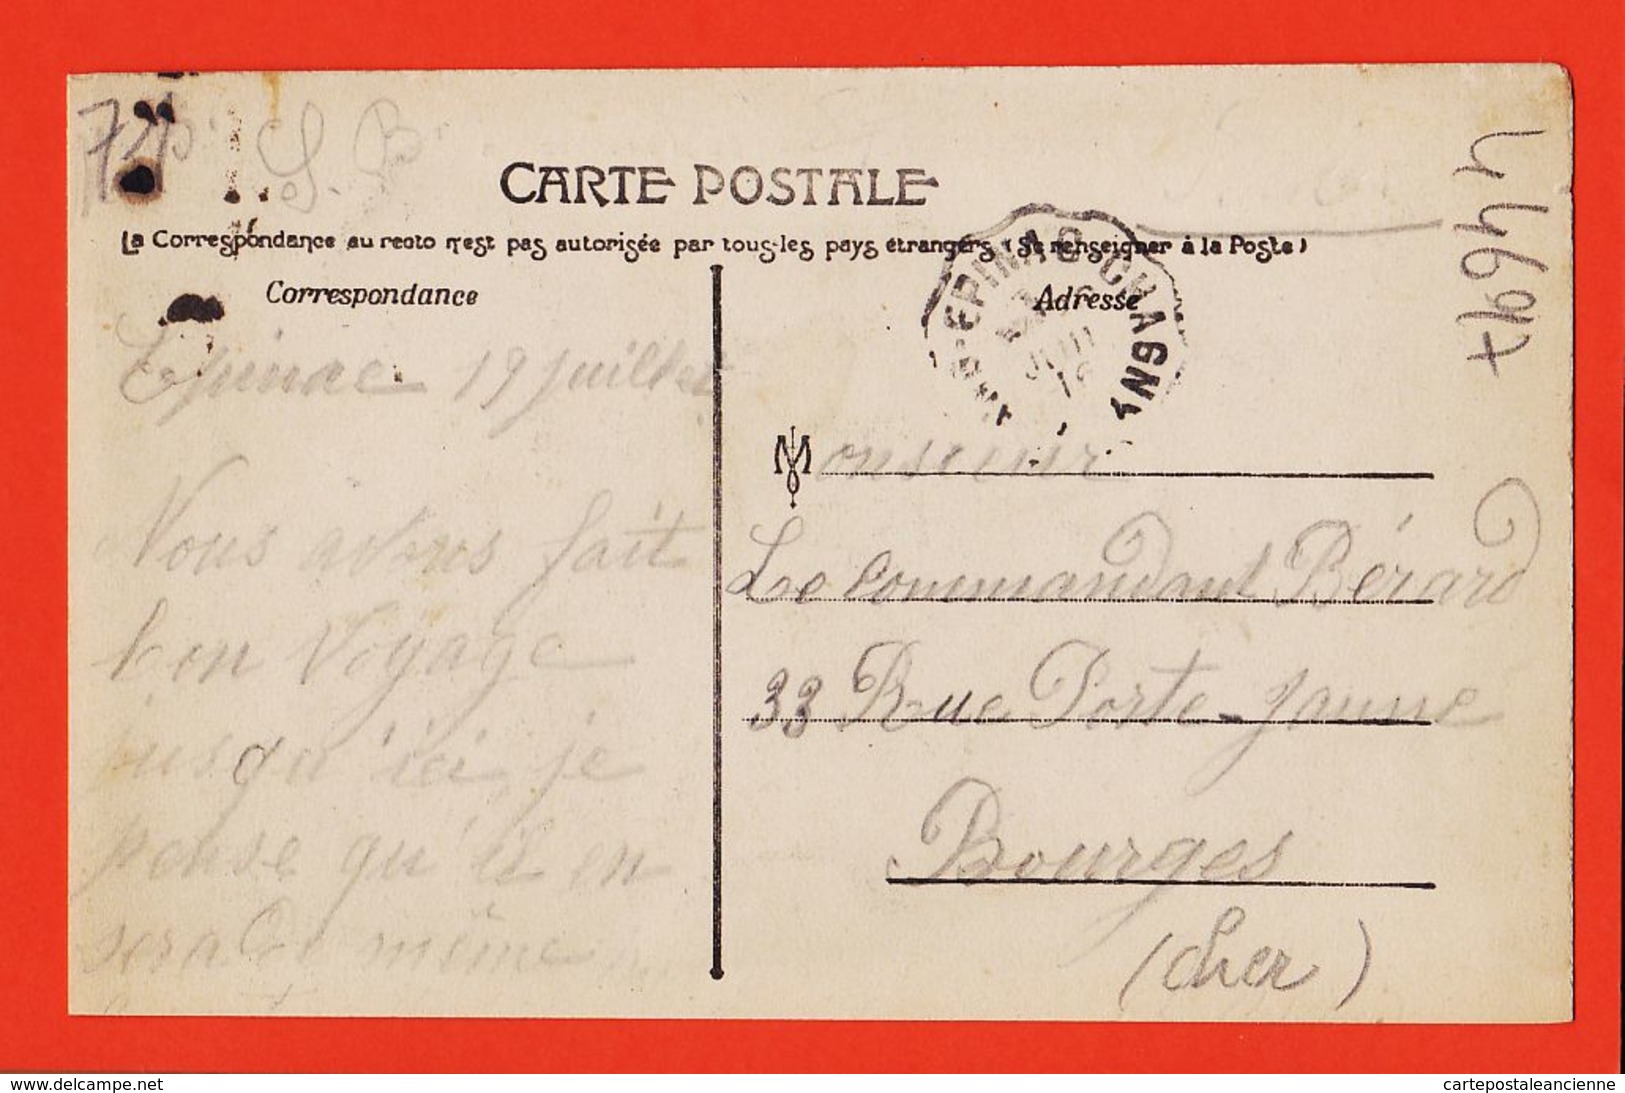 S. B
CARTE POSTALE
La Correspondance au recto n'est pas autorisée par tous les pays étrangers (Se renseigner à la Poste)
Correspondance
Adresse
EPINAC CHAGNY
44697
Epinac 19 juillet
Vous avons fait
bon voyage
jusqu'ici, je
pense qu'il en
sera de même
Monsieur
Le Commandant Bérard
33 Rue Porte-Jaune
Bourges
(Cher)
www.delcampe.net
cartepostaleancienne